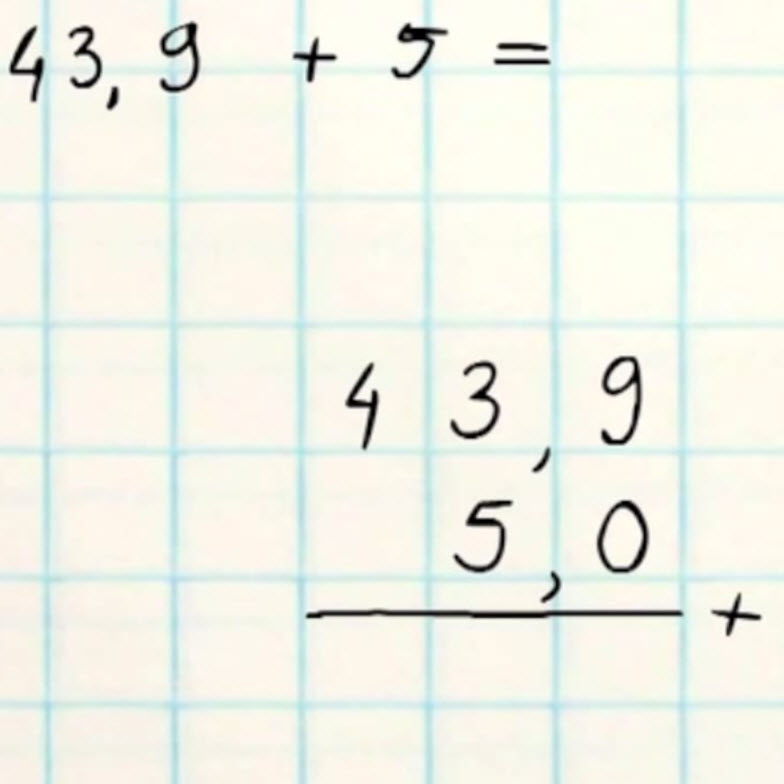 43,9 + 5 =
43,9
5,0
+